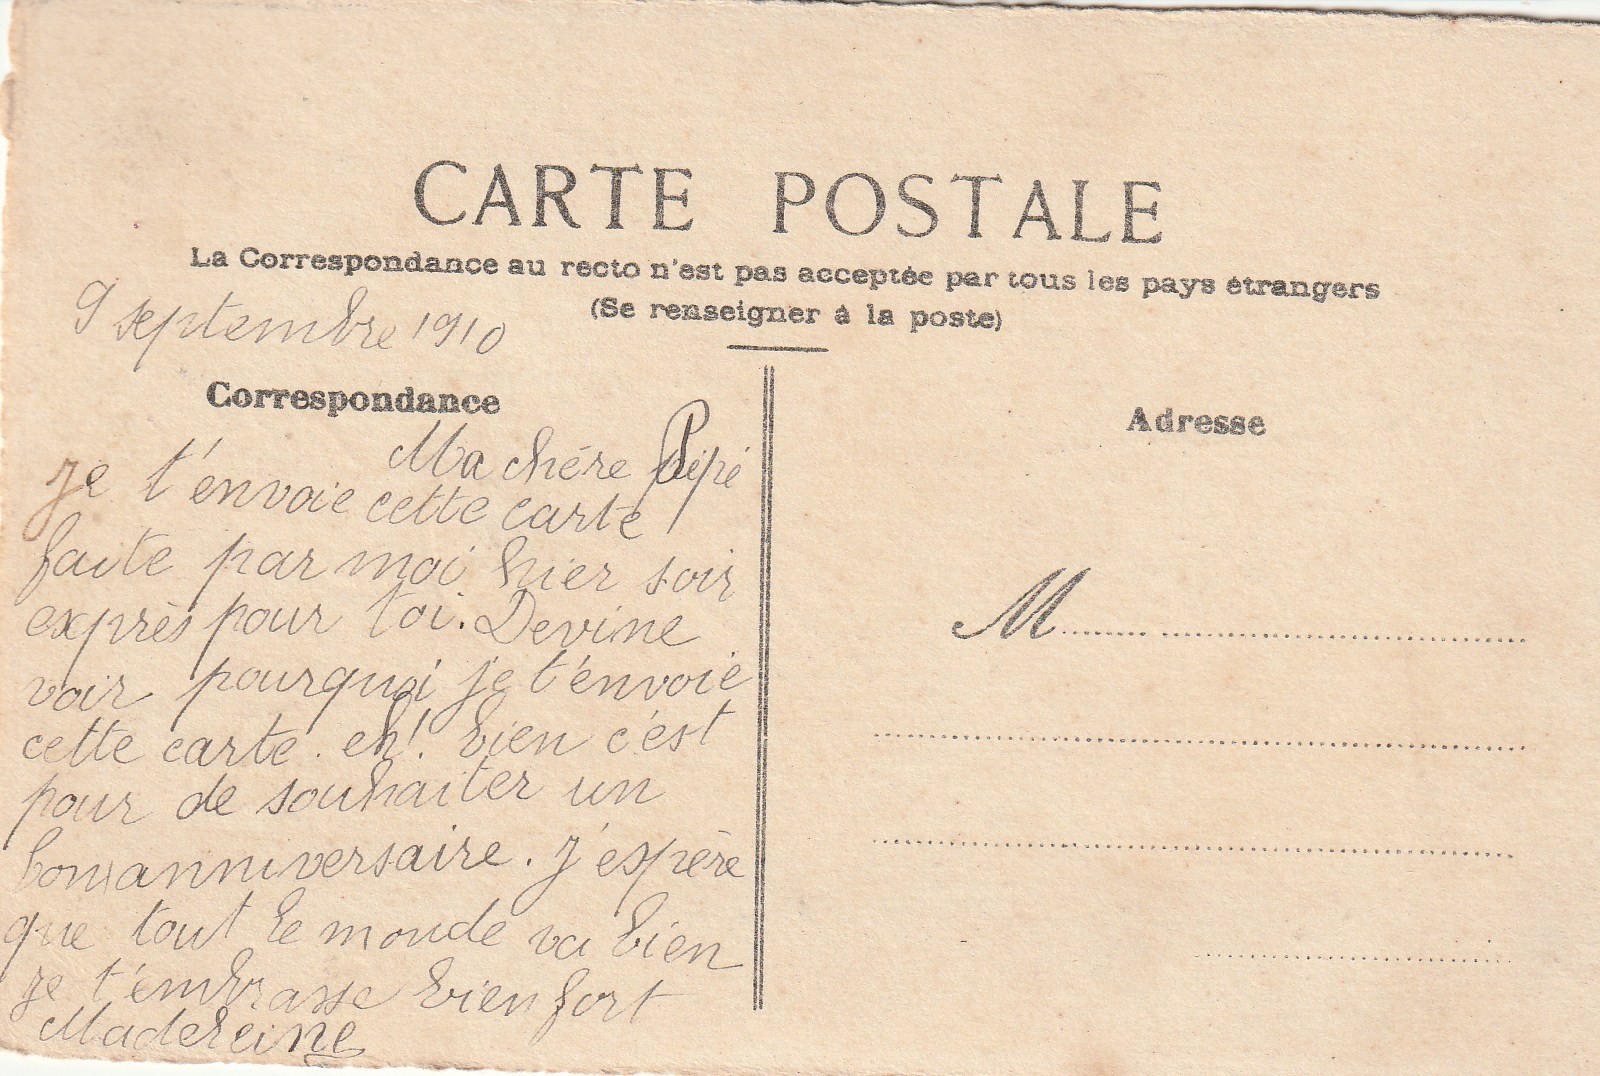 CARTE POSTALE
La Correspondance au recto n'est pas acceptée par tous les pays étrangers
(Se renseigner à la poste)
9 septembre 1910
Correspondance
Adresse
Ma chére Pépé
Je t'énvoie cette carte
faite par moi hier soir
exprès pour toi. Devine
voir pourquoi je t'énvoie
cette carte. eh! bien c'est
pour de souhaiter un
bon anniversaire. J'espère
que tout le monde va bien
Je t'émbrasse bien fort
Madeleine
M